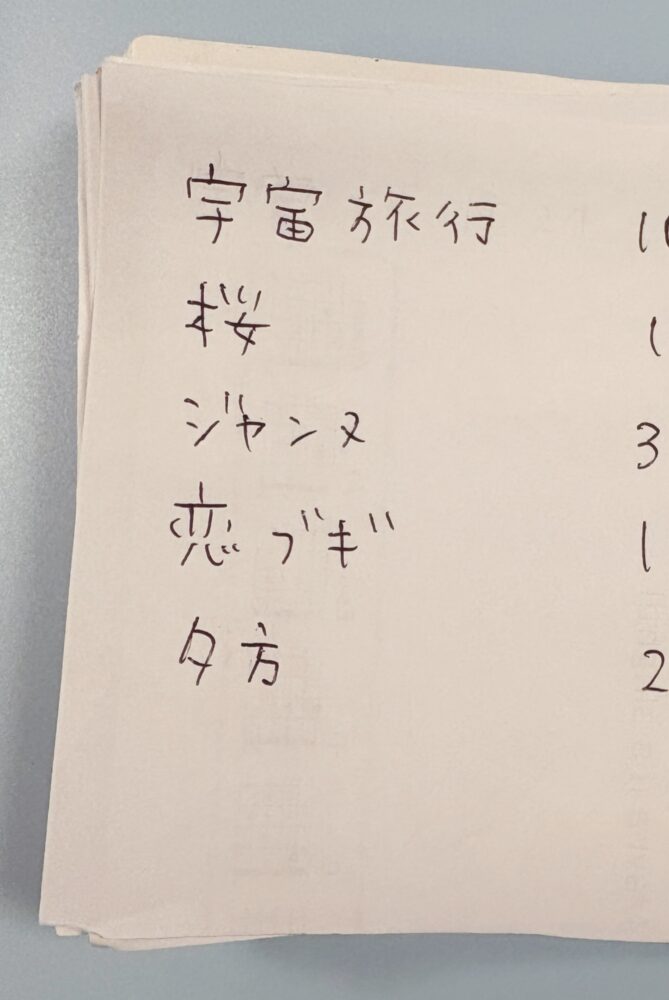 宇宙旅行
桜 1
ジャンヌ 3
恋ブギ 1
夕方 2